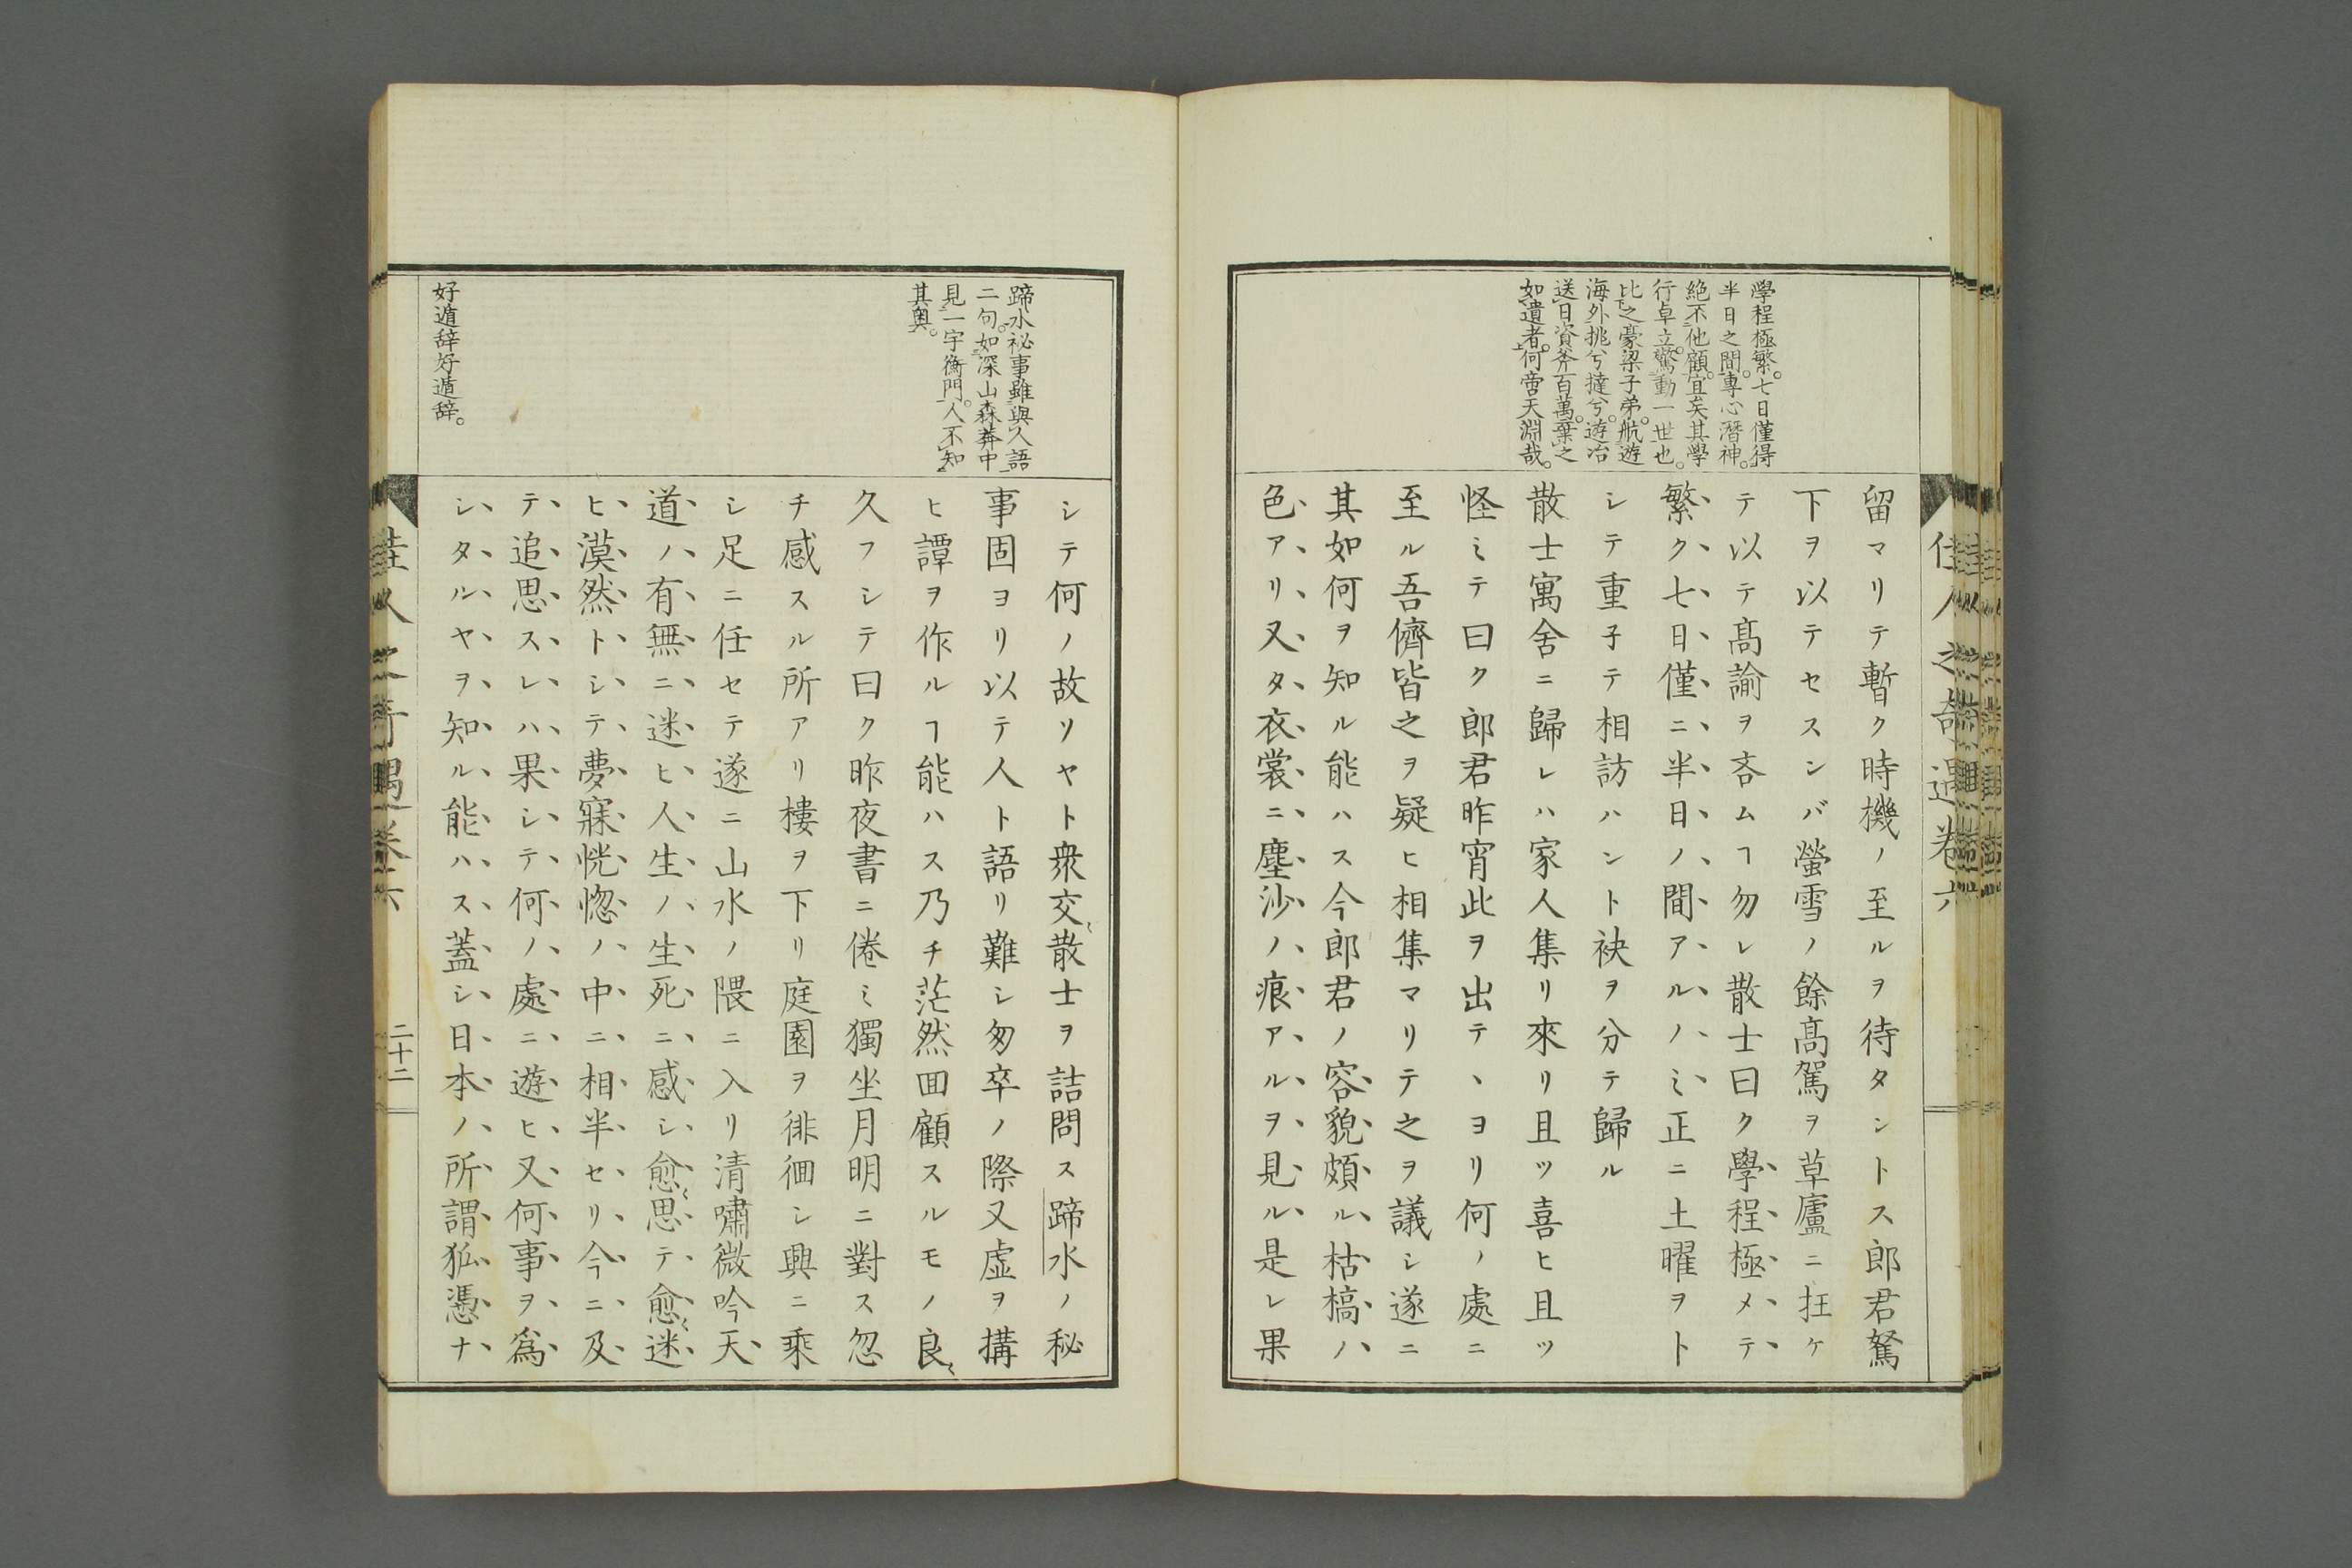 學程極繁。七日僅得
半日之間。專心潛神。
絶不他顧。宜矣其學
行卓立。驚動一世也。
比之豪梁子弟。航遊
海外挑兮撻兮。遊冶
送日資斧百萬。棄之
如遺者。何啻天淵哉。
留マリテ暫ク時機ノ至ルヲ待タントス郎君駑
下ヲ以テセスンバ螢雪ノ餘高駕ヲ草廬ニ抂ケ
テ以テ髙諭ヲ吝ムヿ勿レ散士曰ク學程極メテ
繁ク七日僅ニ半日ノ間アルノミ正ニ土曜ヲト
シテ重子テ相訪ハント袂ヲ分テ歸ル
散士寓舍ニ歸レハ家人集リ來リ且ツ喜ヒ且ツ
怪ミテ曰ク郎君昨宵此ヲ出テヽヨリ何ノ處ニ
至ル吾儕皆之ヲ疑ヒ相集マリテ之ヲ議シ遂ニ
其如何ヲ知ル能ハス今郎君ノ容貌頗ル枯槁ノ
色アリ又タ衣裳ニ塵沙ノ痕アルヲ見ル是レ果
佳人之奇遇卷六
蹄水祕事雖與人語
二句。如深山森莽中
見一宇衡門。人不知
其奧。
好遁辞好遁辞。
シテ何ノ故ソヤト衆交〻散士ヲ詰問ス蹄水ノ秘
事固ヨリ以テ人ト語リ難シ匆卒ノ際又虛ヲ構
ヒ譚ヲ作ルヿ能ハス乃チ茫然囬顧スルモノ良〻
久フシテ曰ク昨夜書ニ倦ミ獨坐月明ニ對ス忽
チ感スル所アリ樓ヲ下リ庭園ヲ徘徊シ興ニ乘
シ足ニ任セテ遂ニ山水ノ隈ニ入リ清嘯微吟天
道ノ有無ニ迷ヒ人生ノ生死ニ感シ愈〻思テ愈〻迷
ヒ漠然トシテ夢寐恍惚ノ中ニ相半セリ今ニ及
テ追思スレハ果シテ何ノ處ニ遊ヒ又何事ヲ爲
シタルヤヲ知ル能ハス蓋シ日本ノ所謂狐憑ナ
佳人之奇遇卷六
二十二